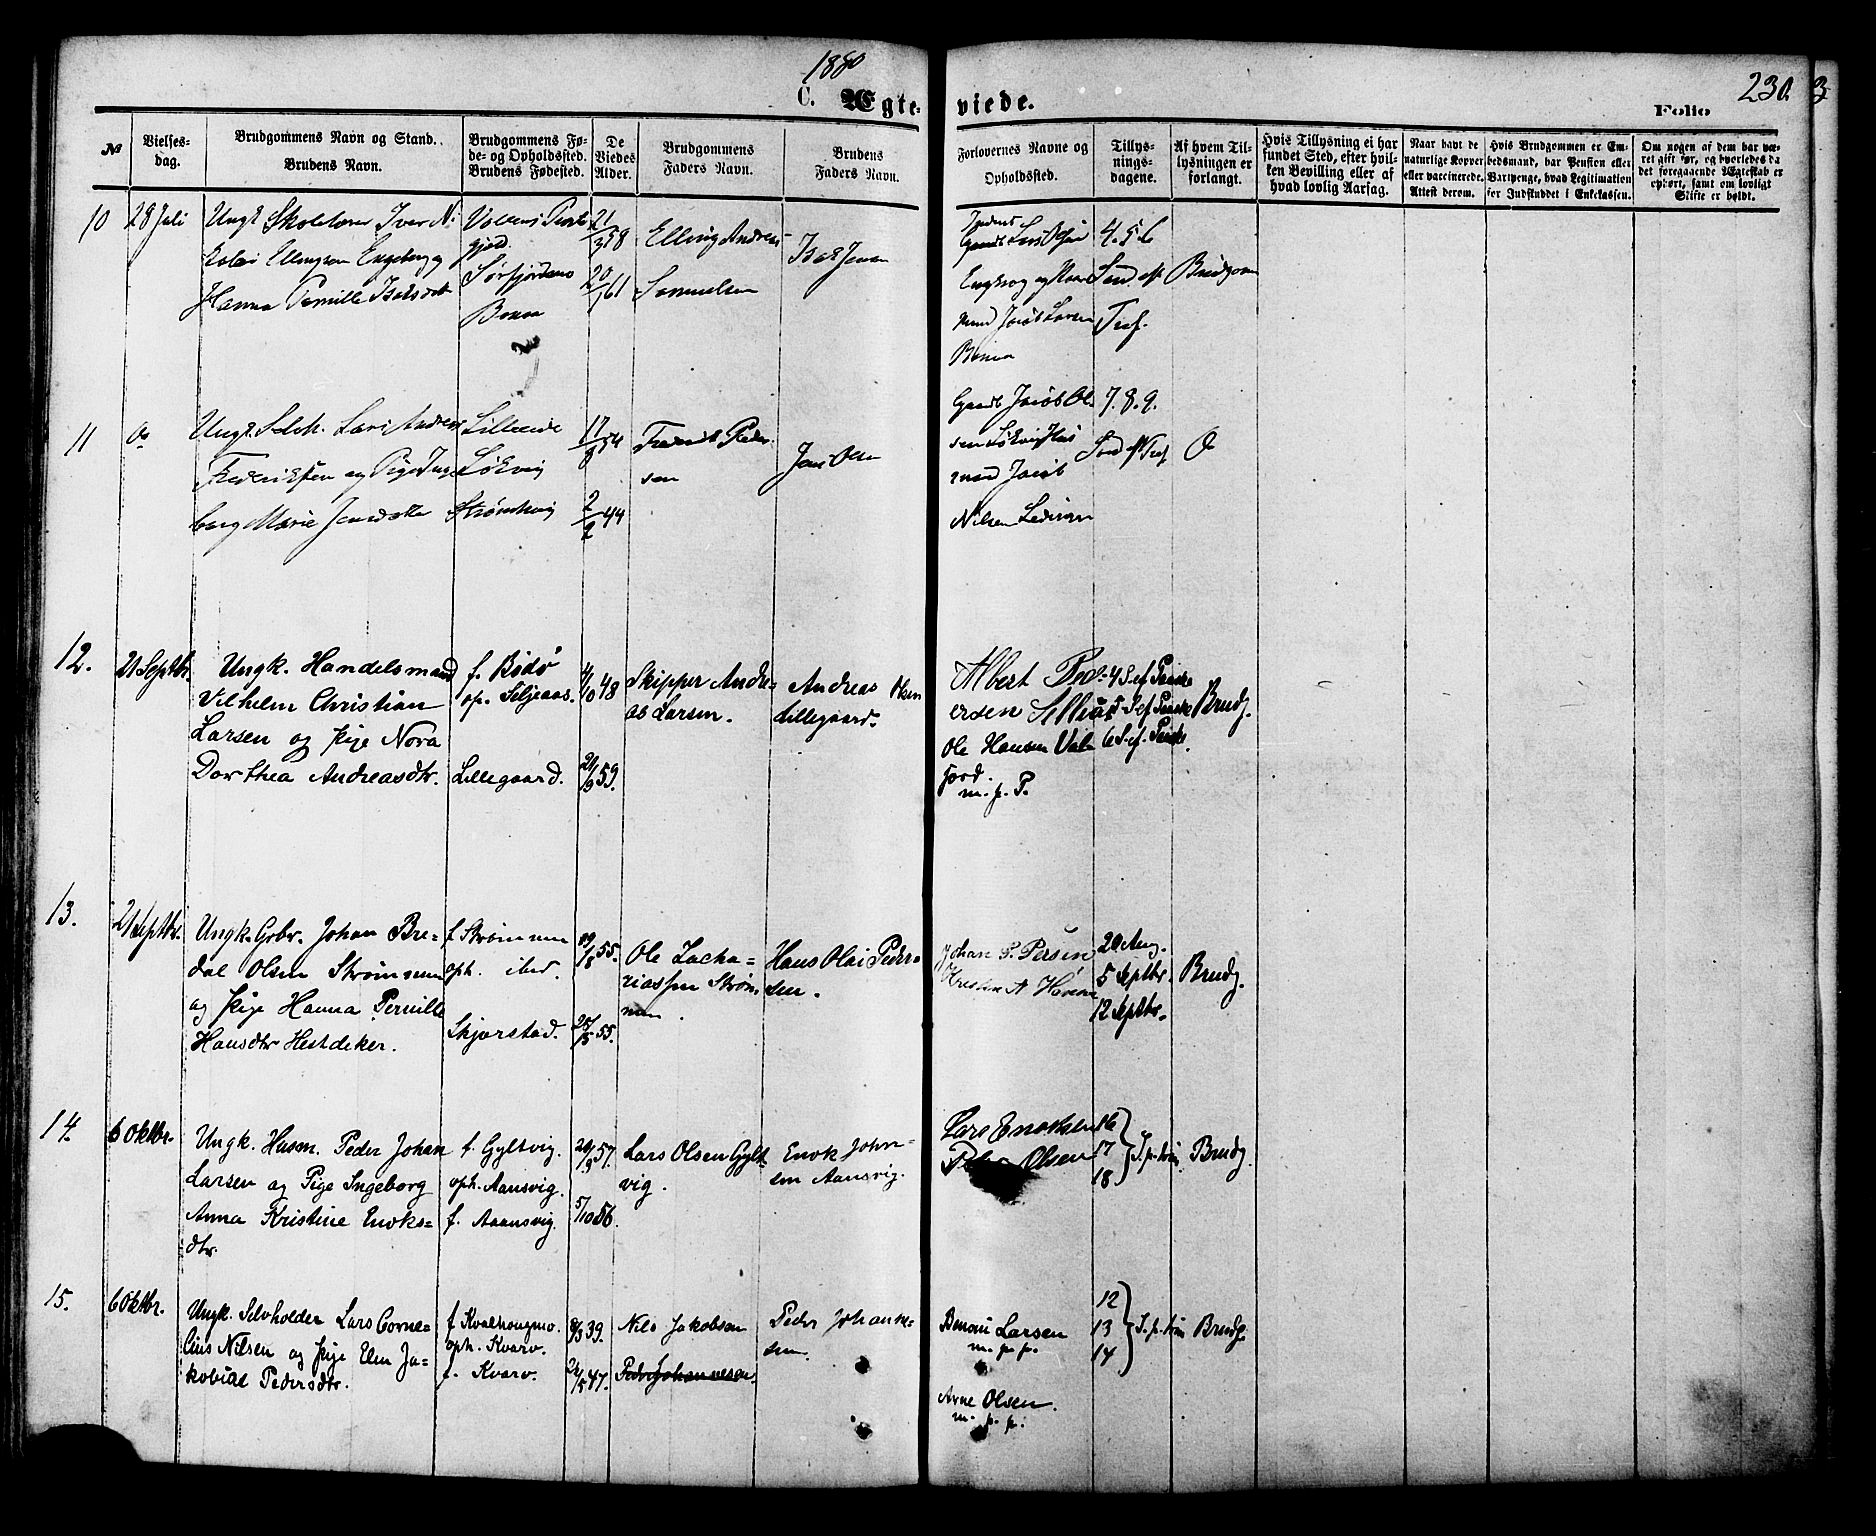 1880
C. Ægte-
viede.
Folio
230.
3
№
Vielses-
dag.
Brudgommens Navn og Stand.
Brudens Navn.
Brudgommens Fø-
de- og Opholdssted.
Brudens Fødested.
De
Viedes
Alder.
Brudgommens
Faders Navn.
Brudens
Faders Navn.
Forlovernes Navne og
Opholdssted.
Tillys-
nings-
dagene.
Af hvem Til-
lysningen er
forlangt.
Hvis Tillysning ei har
fundet Sted, efter hvil-
ken Bevilling eller af
hvad lovlig Aarsag.
Naar havt de
naturlige Kopper
eller vaccinerede.
Attest derom.
Hvis Brudgommen er Em-
bedsmand, har Pension eller
Vartpenge, hvad Legitimation
for Indskuddet i Enkekassen.
Om nogen af dem har væ-
ret gift før, og hvorledes da
det foregaaende Ægteskab er
ophørt, samt om lovligt
Skifte er holdt.
10
28 Juli
Ungk. Iver Ni
Ellingsen Engeberg og
Hanna Pernille
Sørfjordens
21/3 58
20/1 61
Elling Andreas
Samuelsen
Isak Jensen
Lars Olsen
4. 5. 6
Brudgom
Jakob Larsen
Tref.
11
Do
Ungk. Selvh. Lars Andreas
Frederiksen og Pige Inge
borg Marie Jensdatter
Løkvig
Strømhaug
17/8 54
2/2 44
Frederik Peder
sen
Jens Olsen
Gaardb. Jakob Ol
sen Løkvig Hus
mand Jacob
Nilsen
7. 8. 9.
Do
12.
21 Septbr.
Ungk. Handelsmand
Vilhelm Christian
Larsen og Pige Nora
Dorthea Andreasdtr.
f. Bodø
op. Seljeaas.
Lillegaard.
11/10 48
21/9 59.
Skipper Andre-
as Larsen.
Andreas Olsen
Lillegaard.
Albert Ped-
ersen
Ole Hansen Val
fjord.
m. p. P.
4 S. ef. Paaske
5 S. ef. Paaske
6 S. ef. Paaske.
Brudg.
13.
21 Septbr.
Ungk. Gbr. Johan Bre-
dal Olsen Strømmen
og Pige Hanna Pernille
Hansdtr Hestdeker.
f. Strømmen
oph. ibid.
Skjærstad.
19/8 55.
25/5 55.
Ole Zacha-
riassen Strøm
men.
Hans Olai Peder-
sen.
Johan P. Persen
Kristen A
20 Aug.
5 Septbr.
12 Septbr.
Brudg.
14.
6 Oktbr.
Ungk. Husm. Peder Johan
Larsen og Pige Ingeborg
Anna Kristine Enoks-
dtr.
f. Gyltvig.
oph. Aansvig.
f. Aaansvig.
20/9 57.
5/10 56.
Lars Olsen Gylt-
vig.
Enok John-
sen Aansvig.
Lars Enoksen
Peder Olsen
16
17
18
S. p. trin.
Brudg.
15.
6 Oktbr.
Ungk. Selvholder Lars Corne-
lius Nilsen og Pige Elen Ja-
kobine Pedersdtr.
f. Kvalhaugmo.
oph. Kvarv.
f. Kvarv.
8/3 39.
24/5 47.
Nils Jakobsen
Peder Johannesen.
Peder Johanne-
sen.
Benoni Larsen
m. p. p.
Arne Olsen.
m. p. p.
12
13
14
S. p. trin
Brudg.